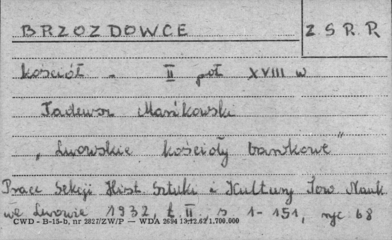 BRZOZDOWCE Z S. R. R
kościół - II poł XVIII w
Tadeusz Mańkowski
"Lwowskie kościoły barokowe"
Prace Sekcji Hist. Sztuki i Kultury Tow Nauk
we Lwowie 1932, t. II s 1-151, ryc 68
CWD - B-15-b, nr 2827/ZW/P — WDA 2694 13.12.62 1.700.000